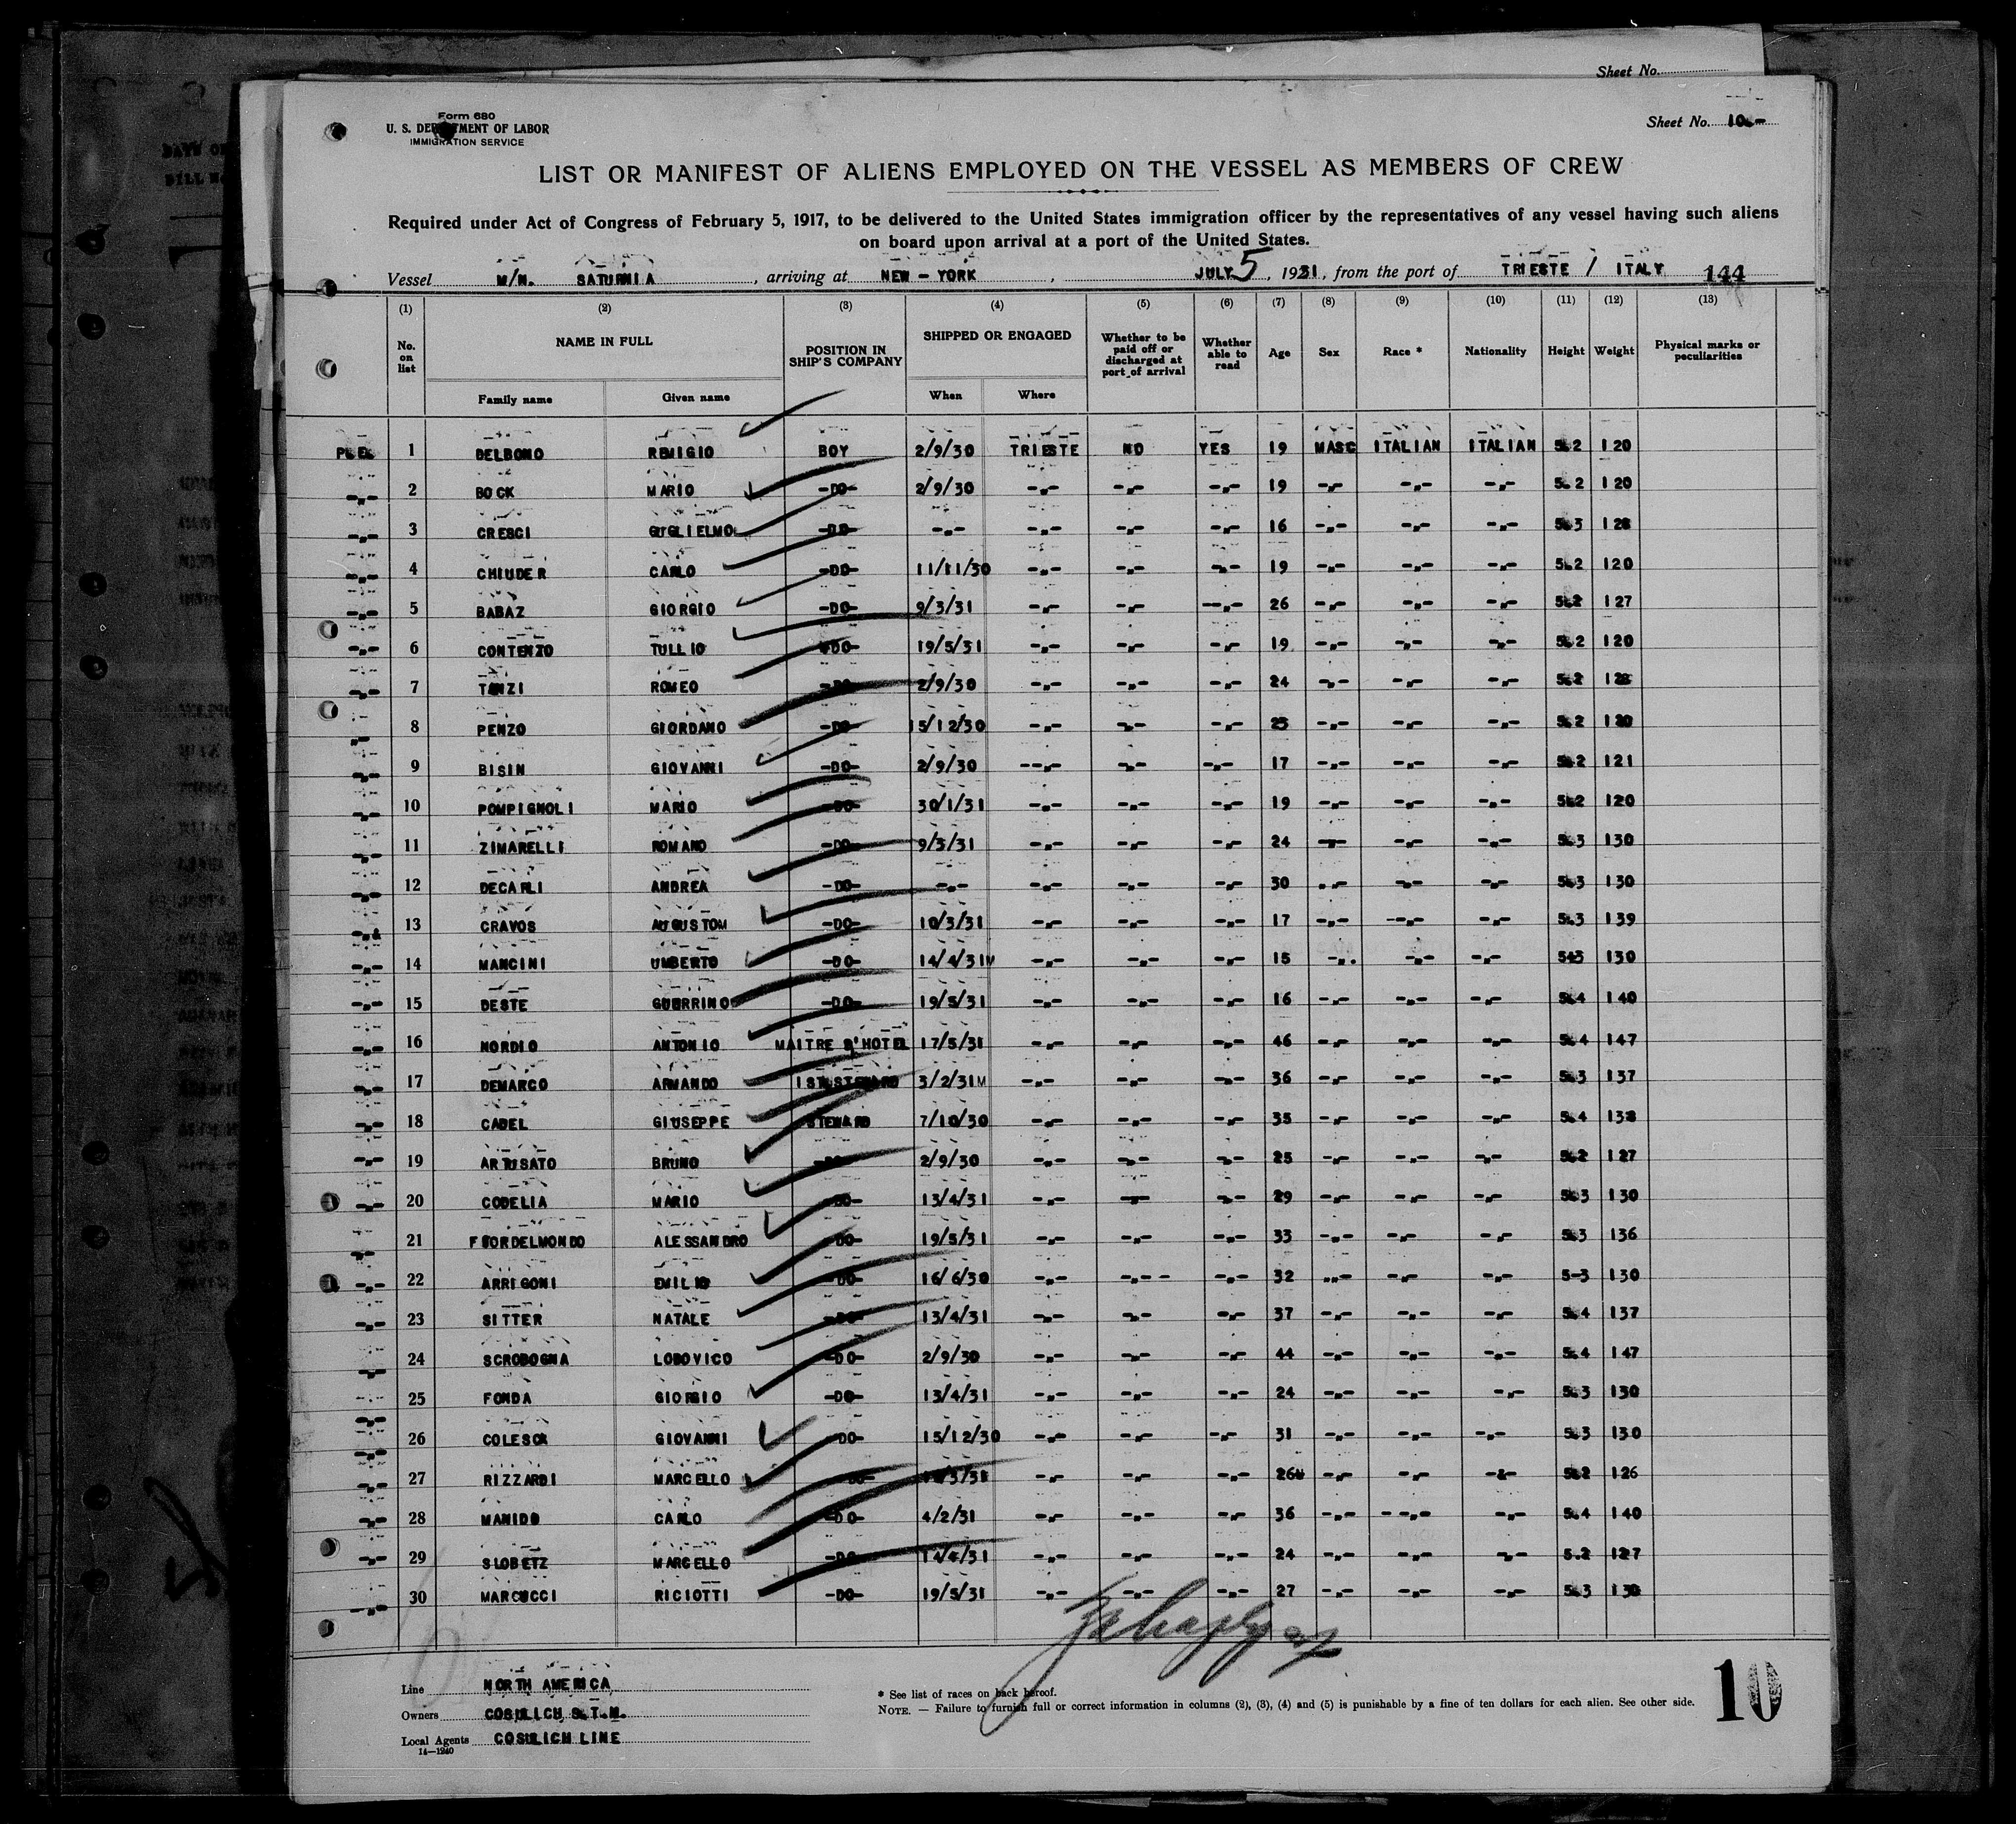 Sheet No.
Form 680
U. S. DEPARTMENT OF LABOR
IMMIGRATION SERVICE
Sheet No. 10.-
LIST OR MANIFEST OF ALIENS EMPLOYED ON THE VESSEL AS MEMBERS OF CREW
Required under Act of Congress of February 5, 1917, to be delivered to the United States immigration officer by the representatives of any vessel having such aliens
on board upon arrival at a port of the United States.
Vessel M/N. SATURNIA, arriving at NEW-YORK, JULY 5, 1931, from the port of TRIESTE / ITALY 144
(1) (2) (3) (4) (5) (6) (7) (8) (9) (10) (11) (12) (13)
No. on list NAME IN FULL Family name Given name POSITION IN SHIP'S COMPANY SHIPPED OR ENGAGED When Where Whether to be paid off or discharged at port of arrival Whether able to read Age Sex Race * Nationality Height Weight Physical marks or peculiarities
1 DELBONO REMIGIO BOY 2/9/30 TRIESTE NO YES 19 MASC ITALIAN ITALIAN 5.2 120
-"- 2 BOCK MARIO -DO- 2/9/30 -"- -"- -"- 19 -"- -"- -"- 5.2 120
-"- 3 CRESCI GUGLIELMO -DO- -"- -"- -"- -"- 16 -"- -"- -"- 5.3 128
-"- 4 CHIUDER CARLO -DO- 11/11/30 -"- -"- -"- 19 -"- -"- -"- 5.2 120
-"- 5 BABAZ GIORGIO -DO- 9/3/31 -"- -"- -"- 26 -"- -"- -"- 5.2 127
-"- 6 CONTENZO TULLIO -DO- 19/5/31 -"- -"- -"- 19 -"- -"- -"- 5.2 120
-"- 7 TANZI ROMEO -DO- 2/9/30 -"- -"- -"- 24 -"- -"- -"- 5.2 128
-"- 8 PENZO GIORDANO -DO- 15/12/30 -"- -"- -"- 23 -"- -"- -"- 5.2 120
-"- 9 BISIN GIOVANNI -DO- 2/9/30 -"- -"- -"- 17 -"- -"- -"- 5.2 121
-"- 10 POMPIGNOLI MARIO -DO- 30/1/31 -"- -"- -"- 19 -"- -"- -"- 5.2 120
-"- 11 ZIMARELLI ROMANO -DO- 9/3/31 -"- -"- -"- 24 -"- -"- -"- 5.3 130
-"- 12 DECARLI ANDREA -DO- -"- -"- -"- -"- 30 -"- -"- -"- 5.3 130
-"- 13 CRAVOS AUGUSTOM -DO- 10/3/31 -"- -"- -"- 17 -"- -"- -"- 5.3 139
-"- 14 MANCINI UMBERTO -DO- 14/4/31 -"- -"- -"- 15 -"- -"- -"- 5.3 130
-"- 15 DESTE GUERRINO -DO- 19/5/31 -"- -"- -"- 16 -"- -"- -"- 5.4 140
-"- 16 NORDIO ANTONIO MAITRE D'HOTEL 17/5/31 -"- -"- -"- 46 -"- -"- -"- 5.4 147
-"- 17 DEMARCO ARMANDO 1ST.STEWARD 3/2/31 -"- -"- -"- 36 -"- -"- -"- 5.3 137
-"- 18 CADEL GIUSEPPE STEWARD 7/10/30 -"- -"- -"- 35 -"- -"- -"- 5.4 138
-"- 19 ARTUSATO BRUNO -DO- 2/9/30 -"- -"- -"- 25 -"- -"- -"- 5.2 127
-"- 20 CODELIA MARIO -DO- 13/4/31 -"- -"- -"- 29 -"- -"- -"- 5.3 130
-"- 21 FIORDELMONDO ALESSANDRO -DO- 19/5/31 -"- -"- -"- 33 -"- -"- -"- 5.3 136
-"- 22 ARRIGONI EMILIO -DO- 16/6/30 -"- -"- -"- 32 -"- -"- -"- 5-3 130
-"- 23 SITTER NATALE -DO- 13/4/31 -"- -"- -"- 37 -"- -"- -"- 5.4 137
-"- 24 SCROBOGNA LODOVICO -DO- 2/9/30 -"- -"- -"- 44 -"- -"- -"- 5.4 147
-"- 25 FONDA GIORGIO -DO- 13/4/31 -"- -"- -"- 24 -"- -"- -"- 5.3 130
-"- 26 COLESCA GIOVANNI -DO- 15/12/30 -"- -"- -"- 31 -"- -"- -"- 5.3 130
-"- 27 RIZZARDI MARCELLO -DO- -"- -"- -"- 26 -"- -"- -"- 5.2 126
-"- 28 MANIDO CARLO -DO- 4/2/31 -"- -"- -"- 36 -"- -"- -"- 5.4 140
-"- 29 SLOBETZ MARCELLO -DO- 14/4/31 -"- -"- -"- 24 -"- -"- -"- 5.2 127
-"- 30 MARCUCCI RICIOTTI -DO- 19/5/31 -"- -"- -"- 27 -"- -"- -"- 5.3 130
Line NORTH AMERICA
Owners COSULICH S.T.N.
Local Agents COSULICH LINE
14-1240
* See list of races on back hereof.
NOTE. — Failure to furnish full or correct information in columns (2), (3), (4) and (5) is punishable by a fine of ten dollars for each alien. See other side.
10